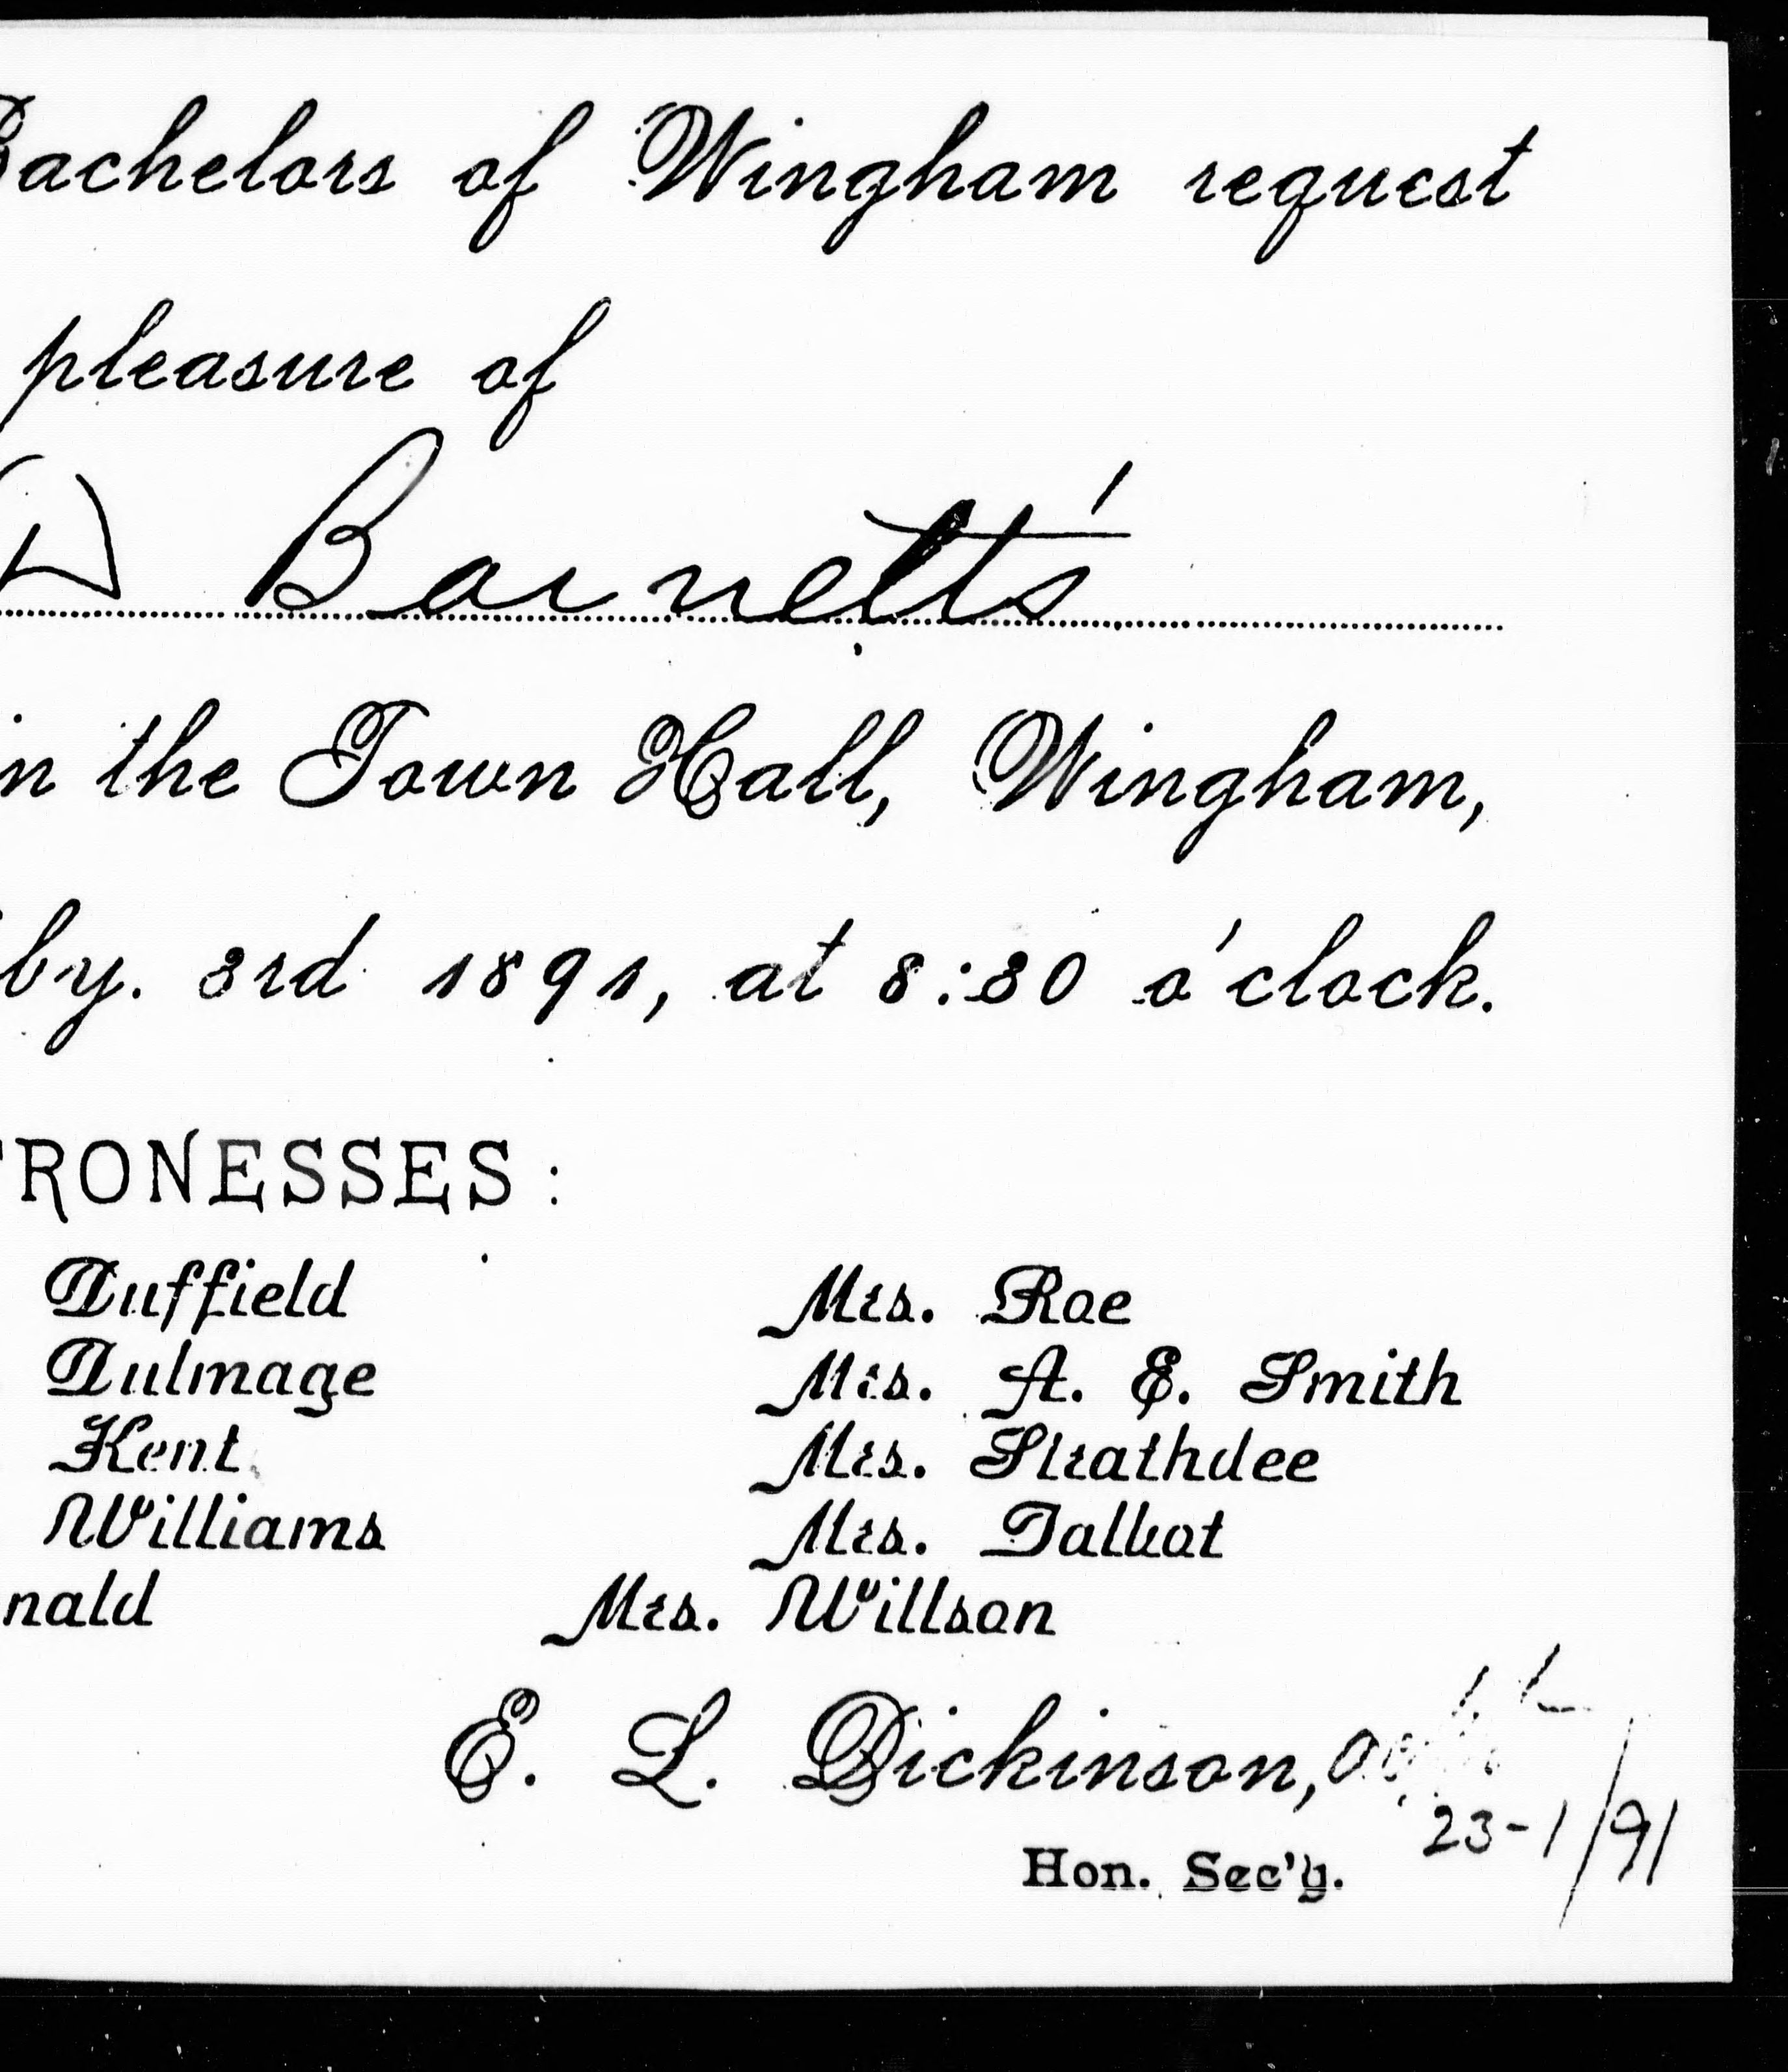 Bachelors of Wingham request
pleasure of
Barnett's
in the Town Hall, Wingham,
by. 3rd 1891, at 8:30 o'clock.
RONESSES:
Duffield Mrs. Roe
Dulmage Mrs. A. E. Smith
Kent Mrs. Strathdee
Williams Mrs. Talbot
nald Mrs. Willson
E. L. Dickinson,
23-1/91
Hon. Sec'y.